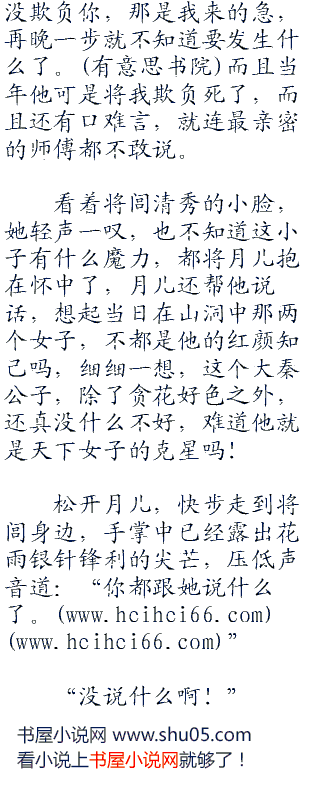 没欺负你，那是我来的急，
再晚一步就不知道要发生什
么了。(有意思书院)而且当
年他可是将我欺负死了，而
且还有口难言，就连最亲密
的师傅都不敢说。
看着将闾清秀的小脸，
她轻声一叹，也不知道这小
子有什么魔力，都将月儿抱
在怀中了，月儿还帮他说
话，想起当日在山洞中那两
个女子，不都是他的红颜知
己吗，细细一想，这个大秦
公子，除了贪花好色之外，
还真没什么不好，难道他就
是天下女子的克星吗！
松开月儿，快步走到将
闾身边，手掌中已经露出花
雨银针锋利的尖芒，压低声
音道：“你都跟她说什么
了。(www.hcihci66.com)
(www.hcihci66.com)”
“没说什么啊！”
书屋小说网 www.shu05.com
看小说上书屋小说网就够了！